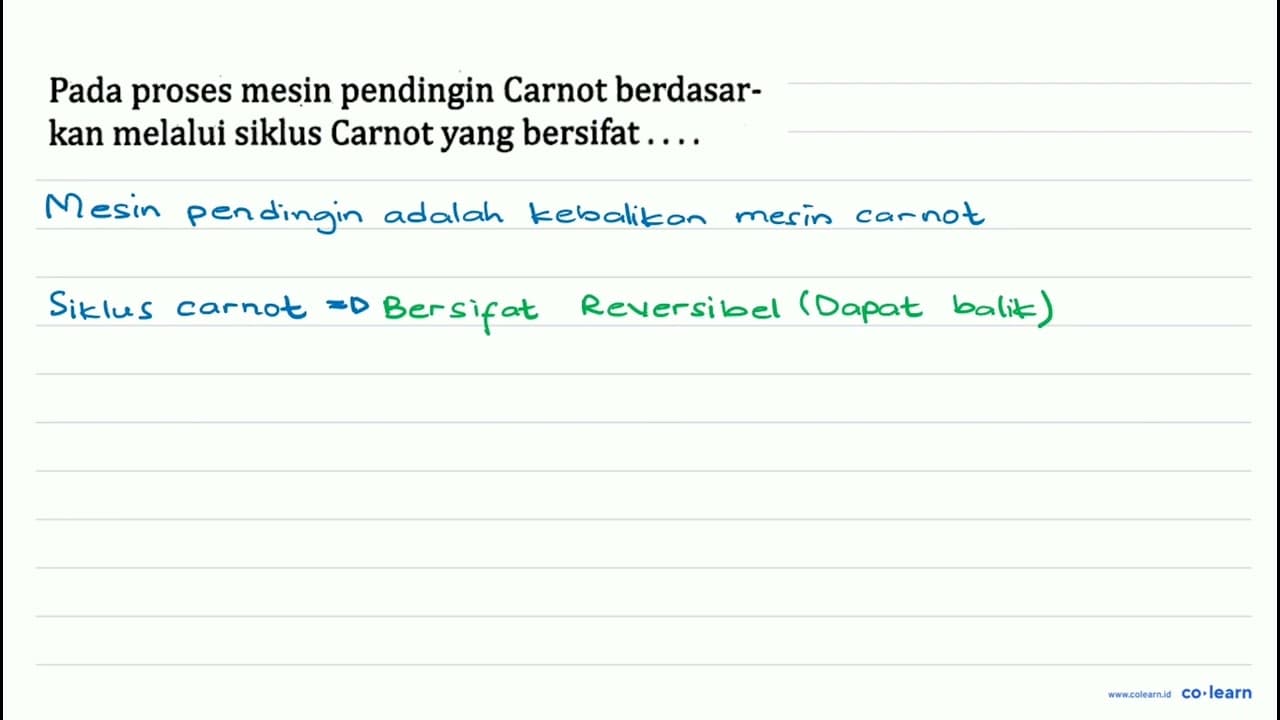 Pada proses mesin pendingin Carnot berdasar-
kan melalui siklus Carnot yang bersifat . . . .
Mesin pendingin adalah kebalikan mesin carnot
Siklus carnot => Bersifat Reversibel (Dapat balik)
www.colearn.id co·learn